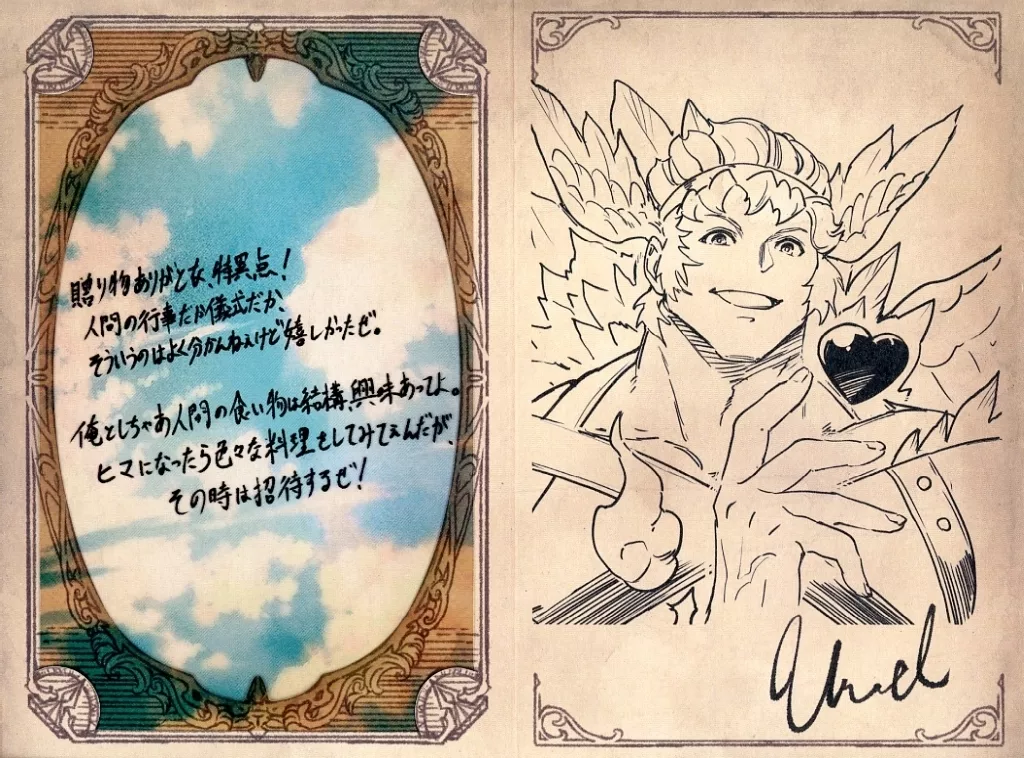 贈り物ありがとな、特異点!
人間の行事だか儀式だか、
そういうのはよく分かんねぇけど嬉しかったぜ。
俺としちゃあ人間の食い物は結構、興味あってよ。
ヒマになったら色々な料理をしてみてぇんだが、
その時は招待するぜ!
Uriel